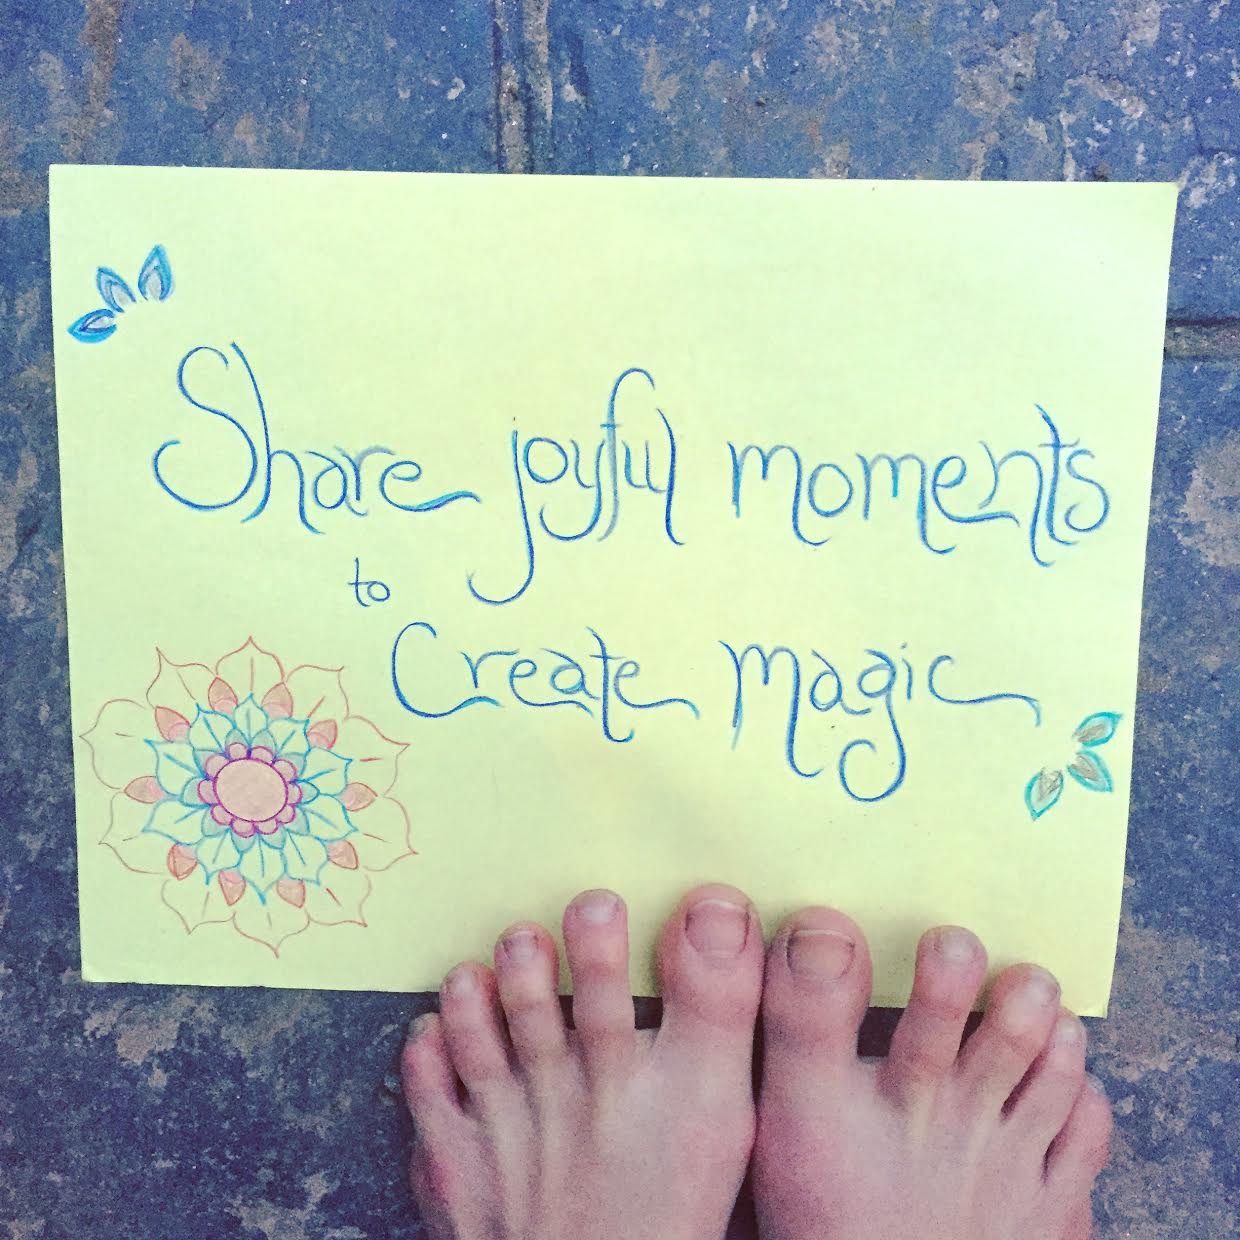 Share joyful moments
to
Create magic